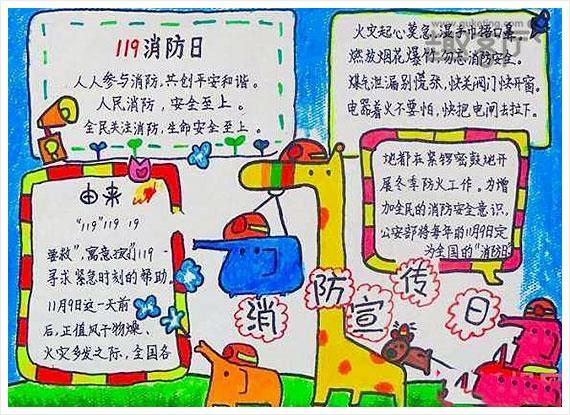 119消防日
人人参与消防,共创平安和谐。
人民消防,安全至上。
全民关注消防,生命安全至上。
火灾起心莫急,湿手巾捂口鼻。
燃放烟花爆竹勿忘消防安全。
煤气泄漏别慌张,快关阀门快开窗。
电器着火不要怕,快把电闸去拉下。
由来
"119" 119 19
要救",寓意拨打119-
寻求紧急时刻的帮助
11月9日这一天前
后,正值风干物燥、
火灾多发之际,全国各
地都在紧锣密鼓地开
展冬季防火工作。为增
加全民的消防安全意识,
公安部将每年的11月9日定
为全国的"消防日
消防宣传日